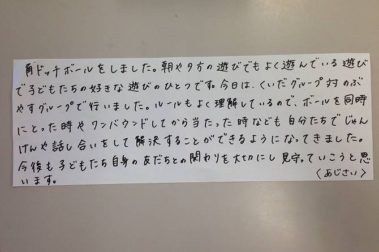 角ドッチボールをしました。朝や夕方の遊びでもよく遊んでいる遊び
で子どもたちの好きな遊びのひとつです。今日は、くいだグループ対のぶ
やすグループで行いました。ルールもよく理解しているので、ボールを同時
にとった時やワンバウンドしてから当たった時なども自分たちでじゃん
けんや話し合いをして解決することができるようになってきました。
今後も子どもたち自身の友だちとの関わりを大切にし見守っていこうと思
います。
(あじさい)